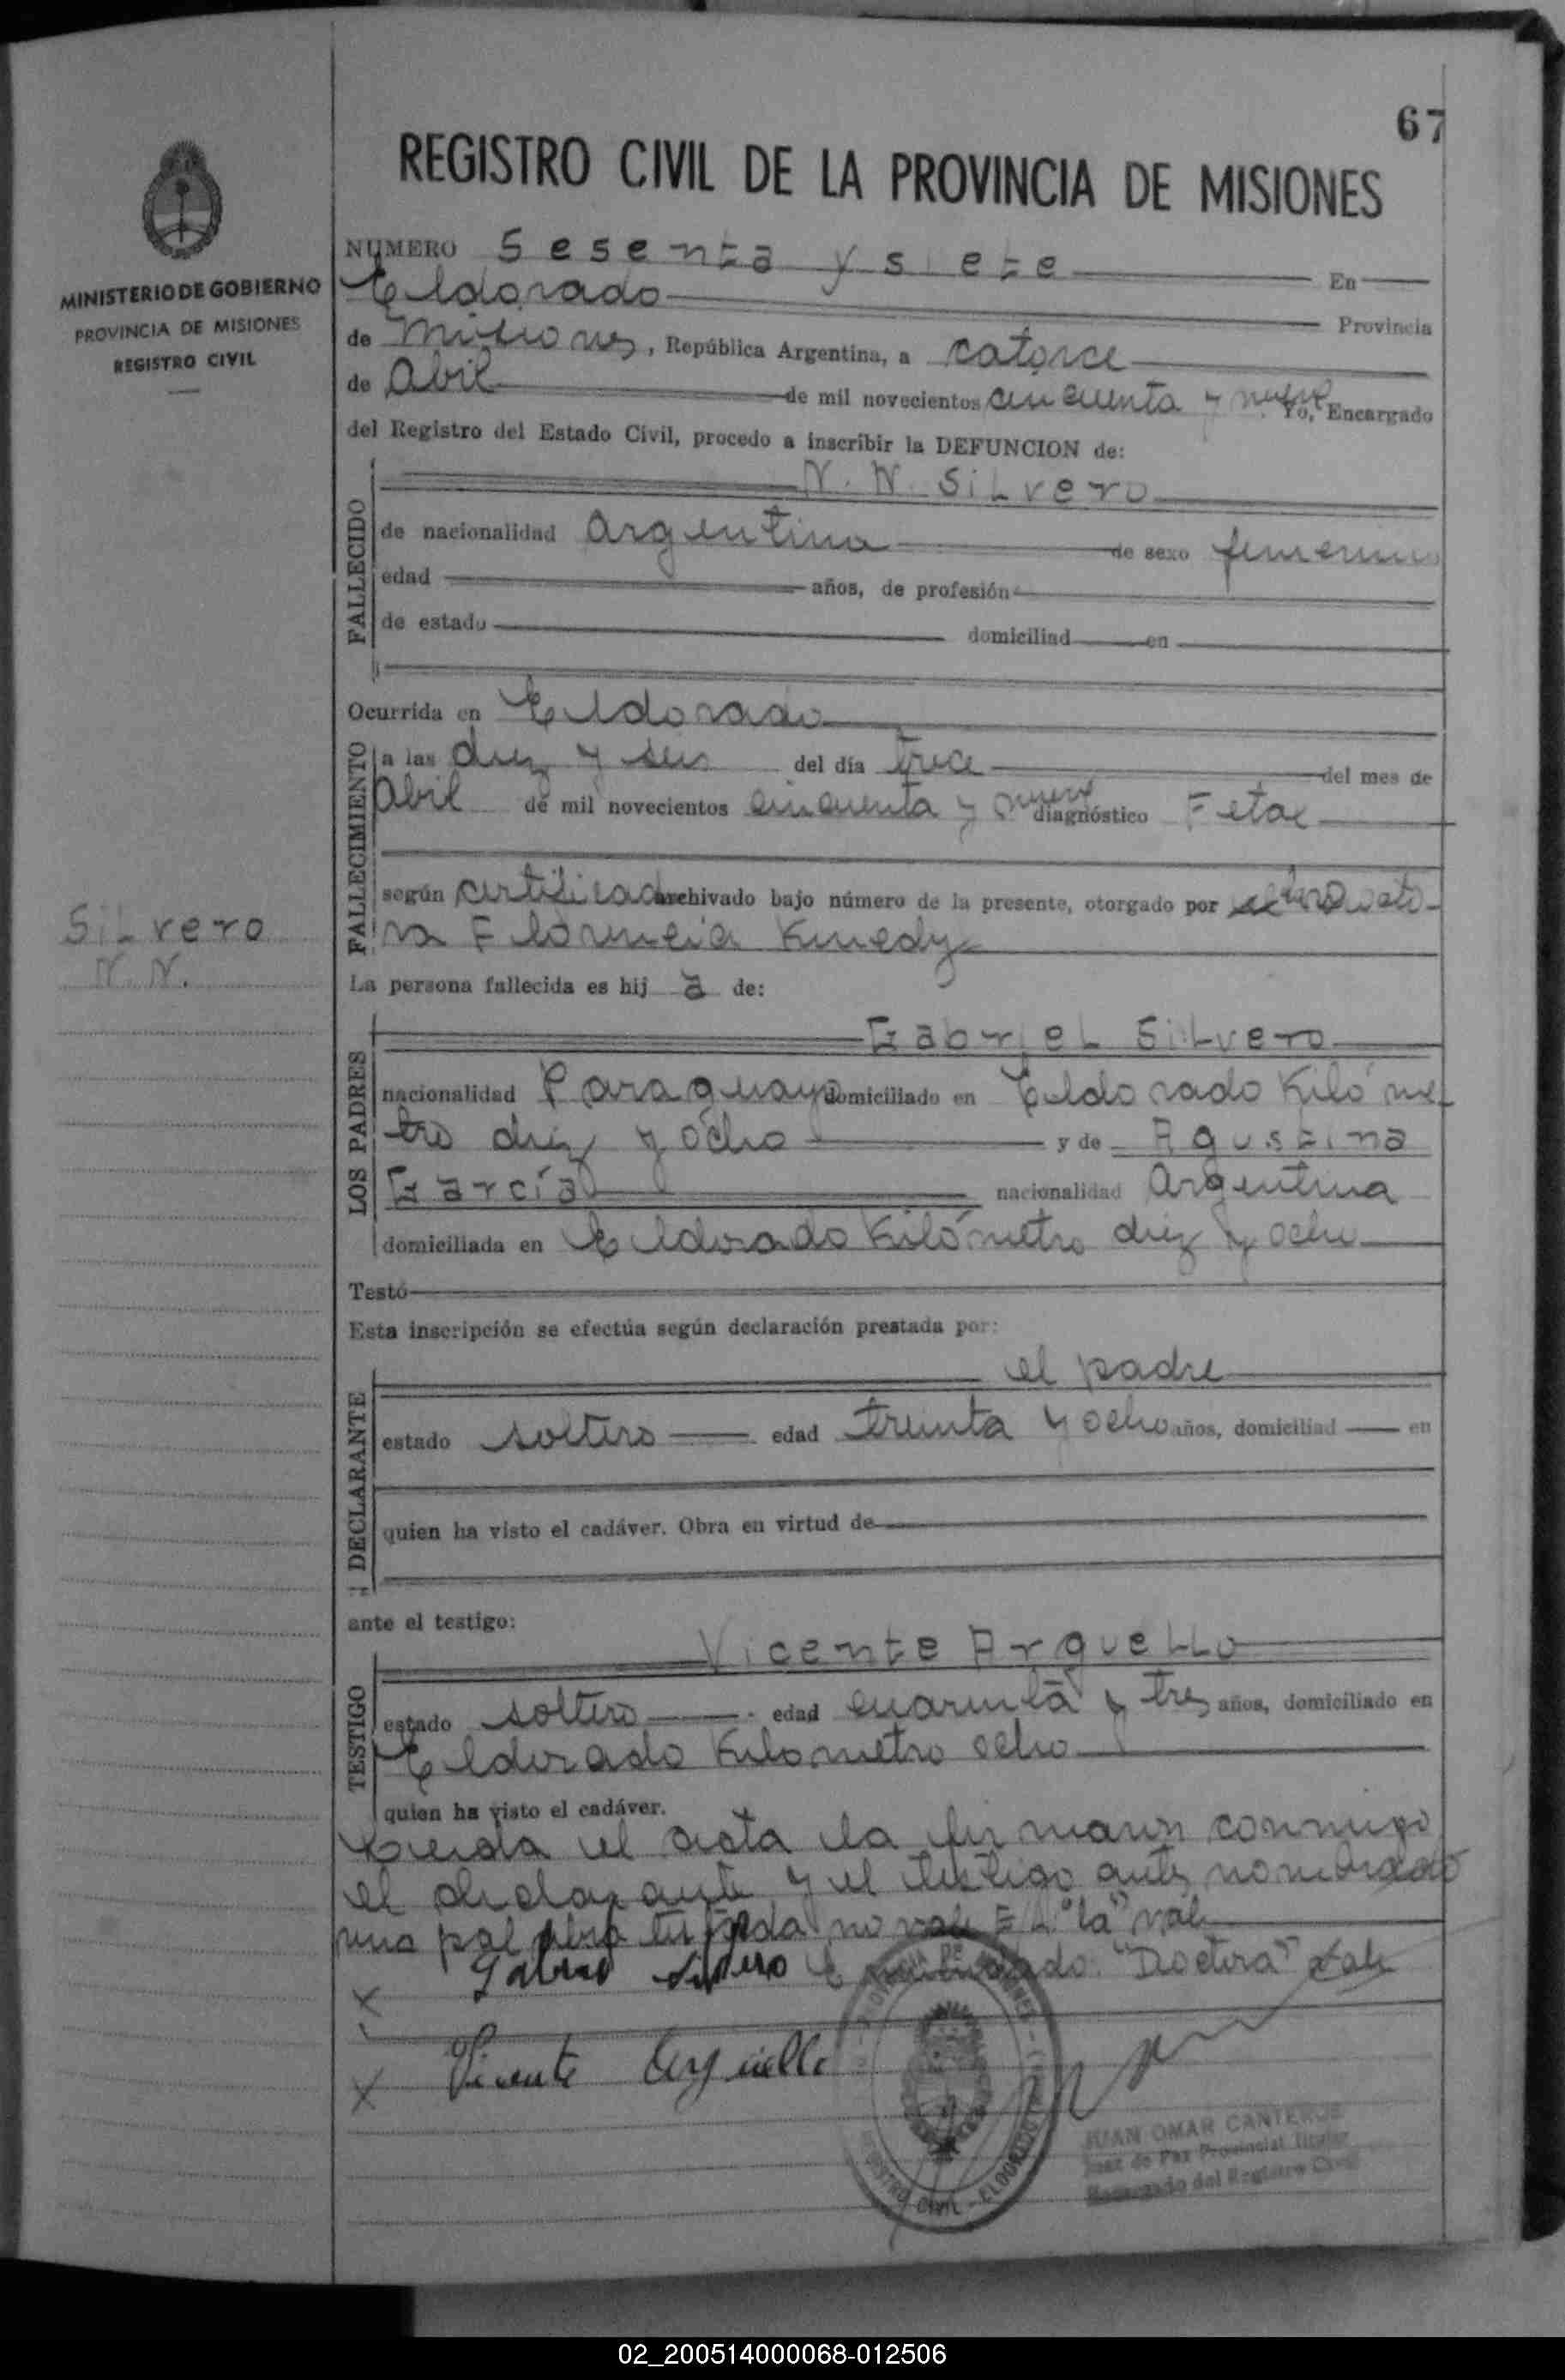 67
REGISTRO CIVIL DE LA PROVINCIA DE MISIONES
MINISTERIO DE GOBIERNO
PROVINCIA DE MISIONES
REGISTRO CIVIL
NUMERO Sesenta y siete En
Eldorado Provincia
de Misiones, República Argentina, a catorce
de Abil de mil novecientos cincuenta y nueve. Yo, Encargado
del Registro del Estado Civil, procedo a inscribir la DEFUNCION de:
N. N. Silvero
FALLECIDO
de nacionalidad Argentina de sexo femenino
edad años, de profesión
de estado domiciliad en
Ocurrida en Eldorado
FALLECIMIENTO
a las diez y seis del día trece del mes de
Abil de mil novecientos cincuenta y nueve diagnóstico Fetal
según certificado archivado bajo número de la presente, otorgado por
Kenedy
Silvero
N. N.
La persona fallecida es hij a de:
LOS PADRES
Gabriel Silvero
nacionalidad Paraguayo domiciliado en Eldorado Kilóme
tro diez y ocho y de Agustina
García nacionalidad Argentina
domiciliada en Eldorado Kilómetro diez y ocho
Testó
Esta inscripción se efectúa según declaración prestada por:
el padre
DECLARANTE
estado soltero edad treinta y ocho años, domiciliad en
quien ha visto el cadáver. Obra en virtud de
ante el testigo:
Vicente Arguello
TESTIGO
estado soltero edad cuarenta y tres años, domiciliado en
Eldorado Kilometro ocho
quien ha visto el cadáver.
Leida el acta la firmaron conmigo
el declarante y el testigo antes nombrado
una palabra testada no vale E/L "la" vale
Gabriel Silvero Enmendado: "Doctora" vale
X
X Vicente Arguello
PROVINCIA DE MISIONES
REGISTRO CIVIL - ELDORADO
JUAN OMAR CANTEROS
Juez de Paz Provincial Titular
Encargado del Registro Civil
02_200514000068-012506